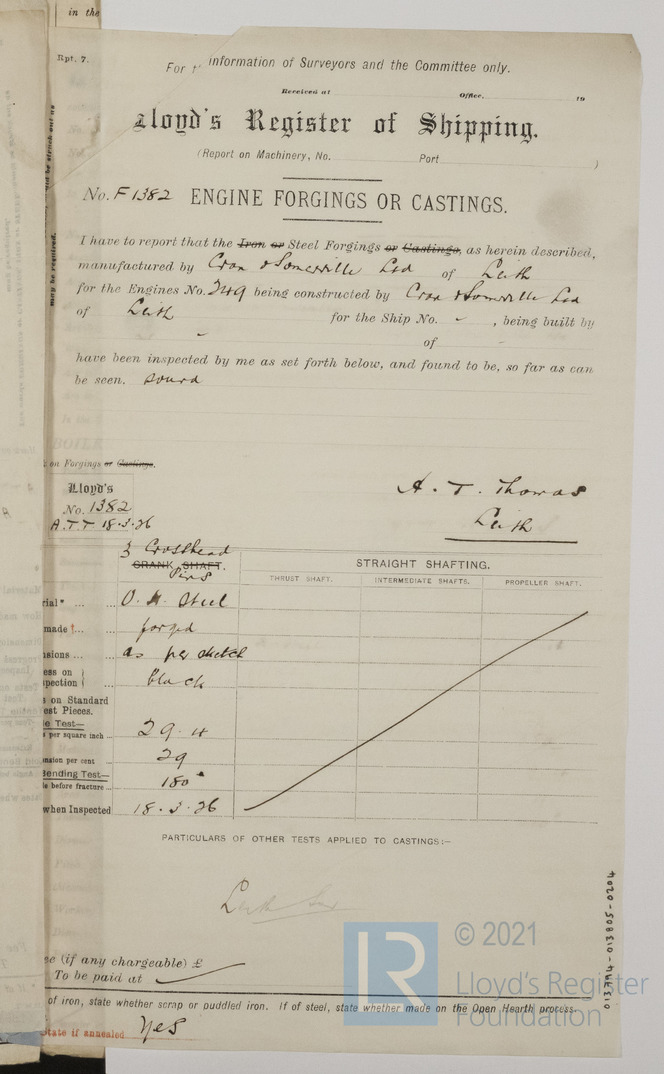 in the
Rpt. 7.
For information of Surveyors and the Committee only.
Received at Office. 19
Lloyd's Register of Shipping.
(Report on Machinery, No. Port )
may be required.
No. F 1382 ENGINE FORGINGS OR CASTINGS.
I have to report that the Iron or Steel Forgings or Castings, as herein described,
manufactured by Cran & Somerville Ltd of Leith
for the Engines No. 249 being constructed by Cran & Somerville Ltd
of Leith for the Ship No. - , being built by
- of -
have been inspected by me as set forth below, and found to be, so far as can
be seen. sound
on Forgings or Castings.
Lloyd's
No. 1382
A.T.T 18.3.26
A. T. Thomas
Leith
3 Crosshead
CRANK SHAFT.
Pins
STRAIGHT SHAFTING.
THRUST SHAFT. INTERMEDIATE SHAFTS. PROPELLER SHAFT.
rial* ... ... O. H. Steel
made †... ... forged
nsions ... ... as per sketch
ess on
pection ... black
s on Standard
est Pieces.
le Test—
s per square inch ... 29.4
nsion per cent 29
Bending Test—
s before fracture ... 180°
when Inspected 18.3.26
PARTICULARS OF OTHER TESTS APPLIED TO CASTINGS:—
Leith
ee (if any chargeable) £
To be paid at
of iron, state whether scrap or puddled iron. If of steel, state whether made on the Open Hearth process.
State if annealed Yes
013794-013805-0204
LR
© 2021
Lloyd's Register
Foundation